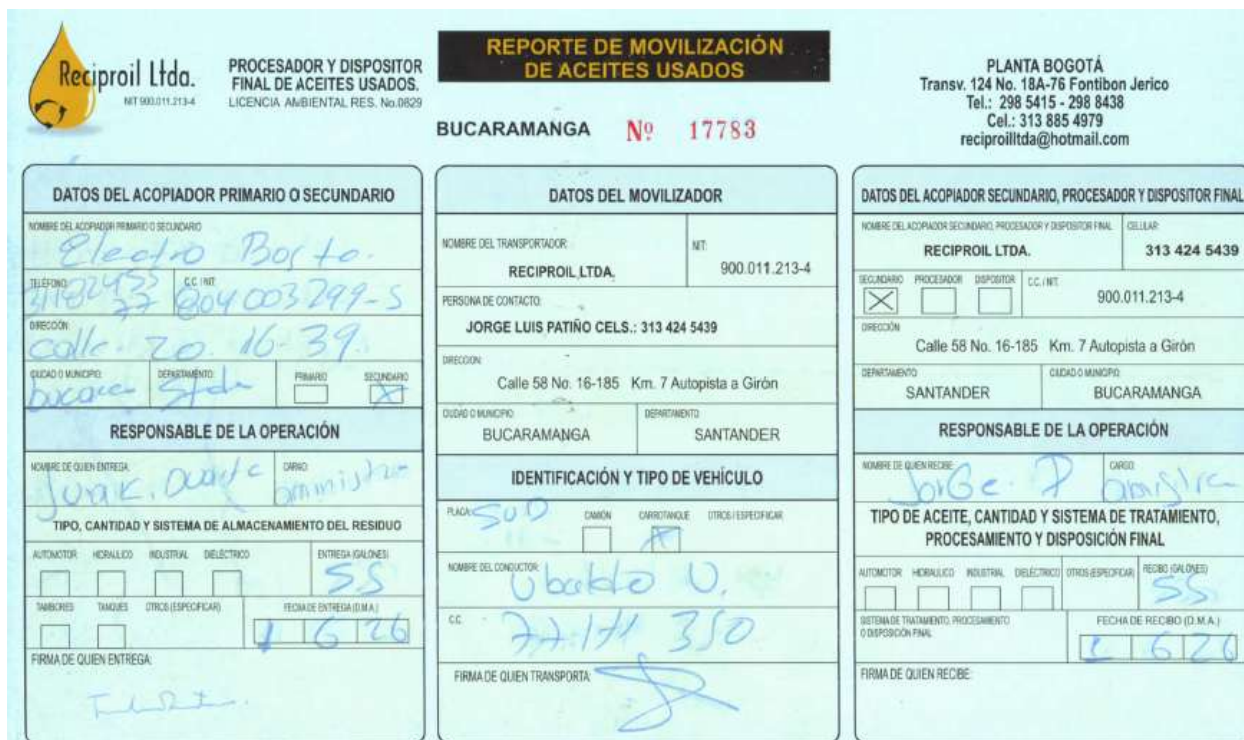 Reciproil Ltda.
NIT 900.011.213-4
PROCESADOR Y DISPOSITOR
FINAL DE ACEITES USADOS.
LICENCIA AMBIENTAL RES. No.0829
REPORTE DE MOVILIZACIÓN
DE ACEITES USADOS
BUCARAMANGA Nº 17783
PLANTA BOGOTÁ
Transv. 124 No. 18A-76 Fontibon Jerico
Tel.: 298 5415 - 298 8438
Cel.: 313 885 4979
reciproilltda@hotmail.com
DATOS DEL ACOPIADOR PRIMARIO O SECUNDARIO
NOMBRE DEL ACOPIADOR PRIMARIO O SECUNDARIO
Electro
TELÉFONO: C.C. / NIT:
804003299-5
DIRECCIÓN:
calle. 20. 16-39.
CIUDAD O MUNICIPIO: DEPARTAMENTO: PRIMARIO SECUNDARIO
X
RESPONSABLE DE LA OPERACIÓN
NOMBRE DE QUIEN ENTREGA: CARGO:
TIPO, CANTIDAD Y SISTEMA DE ALMACENAMIENTO DEL RESIDUO
AUTOMOTOR HIDRAULICO INDUSTRIAL DIELÉCTRICO ENTREGA (GALONES)
55
TAMBORES TANQUES OTROS (ESPECIFICAR) FECHA DE ENTREGA (D.M.A.)
1 6 26
FIRMA DE QUIEN ENTREGA:
DATOS DEL MOVILIZADOR
NOMBRE DEL TRANSPORTADOR: NIT:
RECIPROIL LTDA. 900.011.213-4
PERSONA DE CONTACTO:
JORGE LUIS PATIÑO CELS.: 313 424 5439
DIRECCION:
Calle 58 No. 16-185 Km. 7 Autopista a Girón
CIUDAD O MUNICIPIO: DEPARTAMENTO:
BUCARAMANGA SANTANDER
IDENTIFICACIÓN Y TIPO DE VEHÍCULO
PLACA: CAMIÓN CARROTANQUE OTROS / ESPECIFICAR
X
NOMBRE DEL CONDUCTOR:
Ubaldo U.
C.C.
77.171 350
FIRMA DE QUIEN TRANSPORTA:
DATOS DEL ACOPIADOR SECUNDARIO, PROCESADOR Y DISPOSITOR FINAL
NOMBRE DEL ACOPIADOR SECUNDARIO, PROCESADOR Y DISPOSITOR FINAL CELULAR:
RECIPROIL LTDA. 313 424 5439
SECUNDARIO PROCESADOR DISPOSITOR C.C. / NIT:
X 900.011.213-4
DIRECCIÓN
Calle 58 No. 16-185 Km. 7 Autopista a Girón
DEPARTAMENTO CIUDAD O MUNICIPIO:
SANTANDER BUCARAMANGA
RESPONSABLE DE LA OPERACIÓN
NOMBRE DE QUIEN RECIBE: CARGO:
Jorge. P
TIPO DE ACEITE, CANTIDAD Y SISTEMA DE TRATAMIENTO,
PROCESAMIENTO Y DISPOSICIÓN FINAL
AUTOMOTOR HIDRAULICO INDUSTRIAL DIELÉCTRICO OTROS (ESPECIFICAR) RECIBO (GALONES)
55
SISTEMA DE TRATAMIENTO, PROCESAMIENTO
O DISPOSICIÓN FINAL
FECHA DE RECIBO (D.M.A.)
1 6 26
FIRMA DE QUIEN RECIBE: